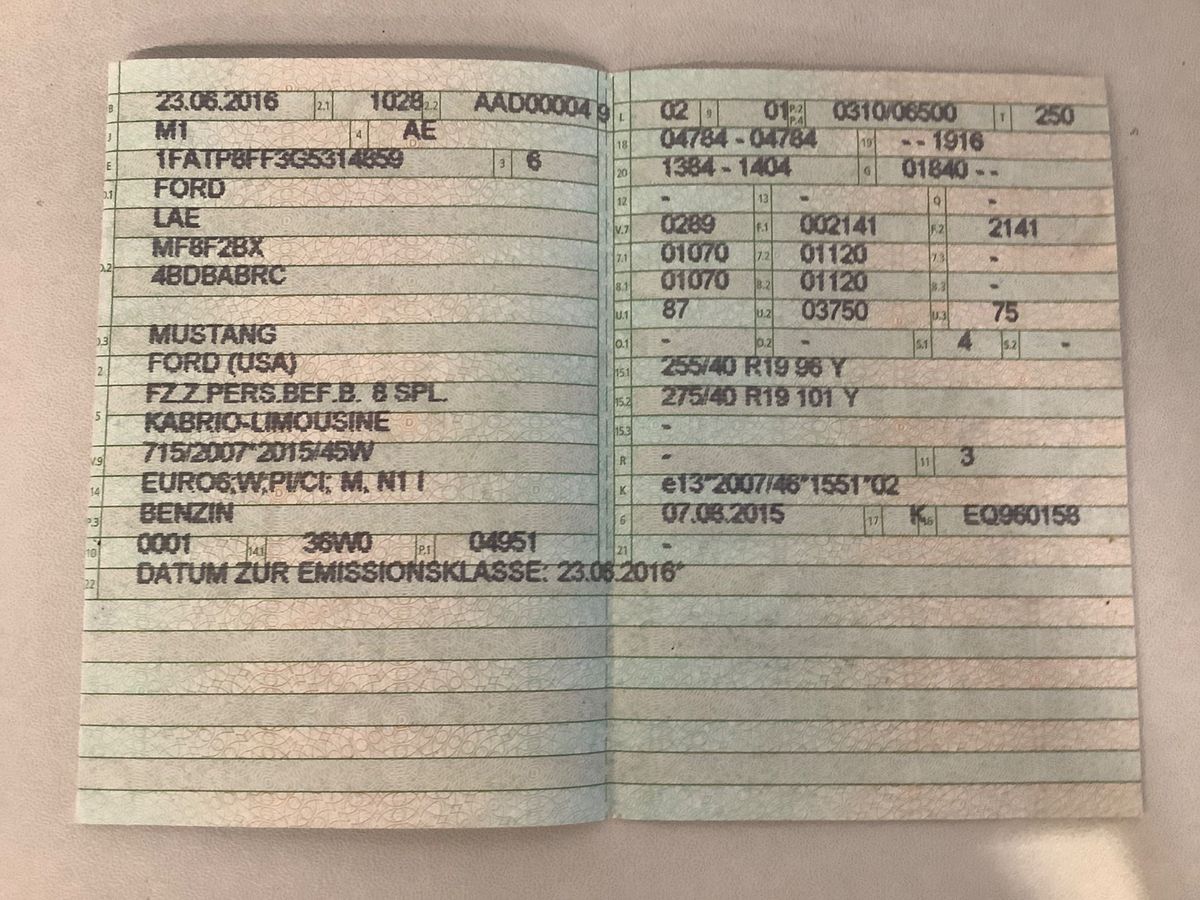 B 23.06.2016 2.1 1028 2.2 AAD00004 9
J M1 4 AE
E 1FATP8FF3G5314859 3 6
D.1 FORD
LAE
D.2 MF8F2BX
4BDBABRC
D.3 MUSTANG
2 FORD (USA)
FZ.Z.PERS.BEF.B. 8 SPL.
5 KABRIO-LIMOUSINE
V.9 715/2007*2015/45W
14 EURO6;W;PI/CI; M, N1 I
P.3 BENZIN
10 0001 14.1 36W0 P.1 04951
22 DATUM ZUR EMISSIONSKLASSE: 23.06.2016*
L 02 9 01 P.2 P.4 0310/06500 T 250
18 04784 - 04784 19 - - 1916
20 1384 - 1404 G 01840 - -
12 - 13 - Q -
V.7 0289 F.1 002141 F.2 2141
7.1 01070 7.2 01120 7.3 -
8.1 01070 8.2 01120 8.3 -
U.1 87 U.2 03750 U.3 75
O.1 - O.2 - S.1 4 S.2 -
15.1 255/40 R19 96 Y
15.2 275/40 R19 101 Y
15.3 -
R - 11 3
K e13*2007/46*1551*02
6 07.08.2015 17 K 16 EQ960158
21 -